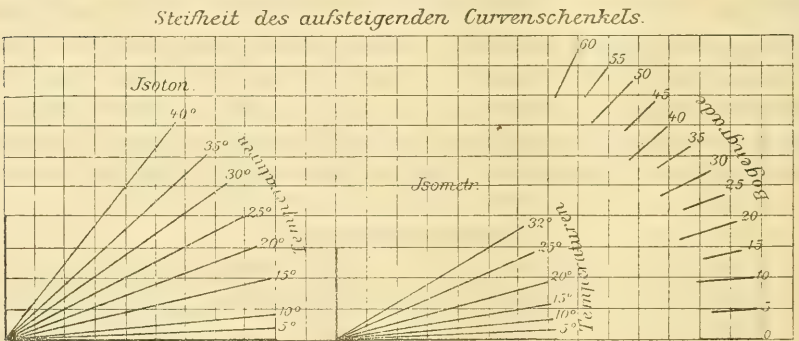 Steifheit des aufsteigenden Curvenschenkels.
Jsoton.
40°
35°
30°
25°
20°
15°
10°
5°
Temperaturen
Jsometr.
32°
25°
20°
15°
10°
5°
Temperaturen
60
55
50
45
40
35
30
25
20
15
10
5
0
Bogengrade